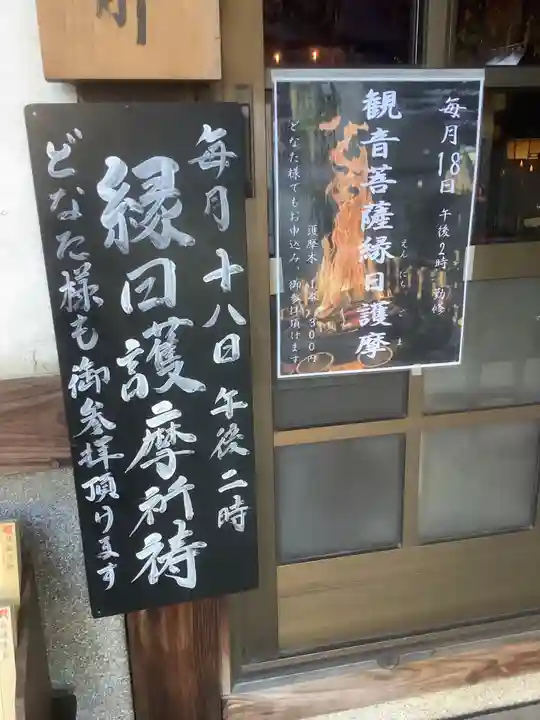 毎月十八日午後二時
縁日護摩祈祷
どなた様も御参拝頂けます
毎月18日 午後2時 勤修
観音菩薩縁日護摩
えんにち
ま
護摩木 1本 300円
どなた様でもお申込み、御参拝頂けます